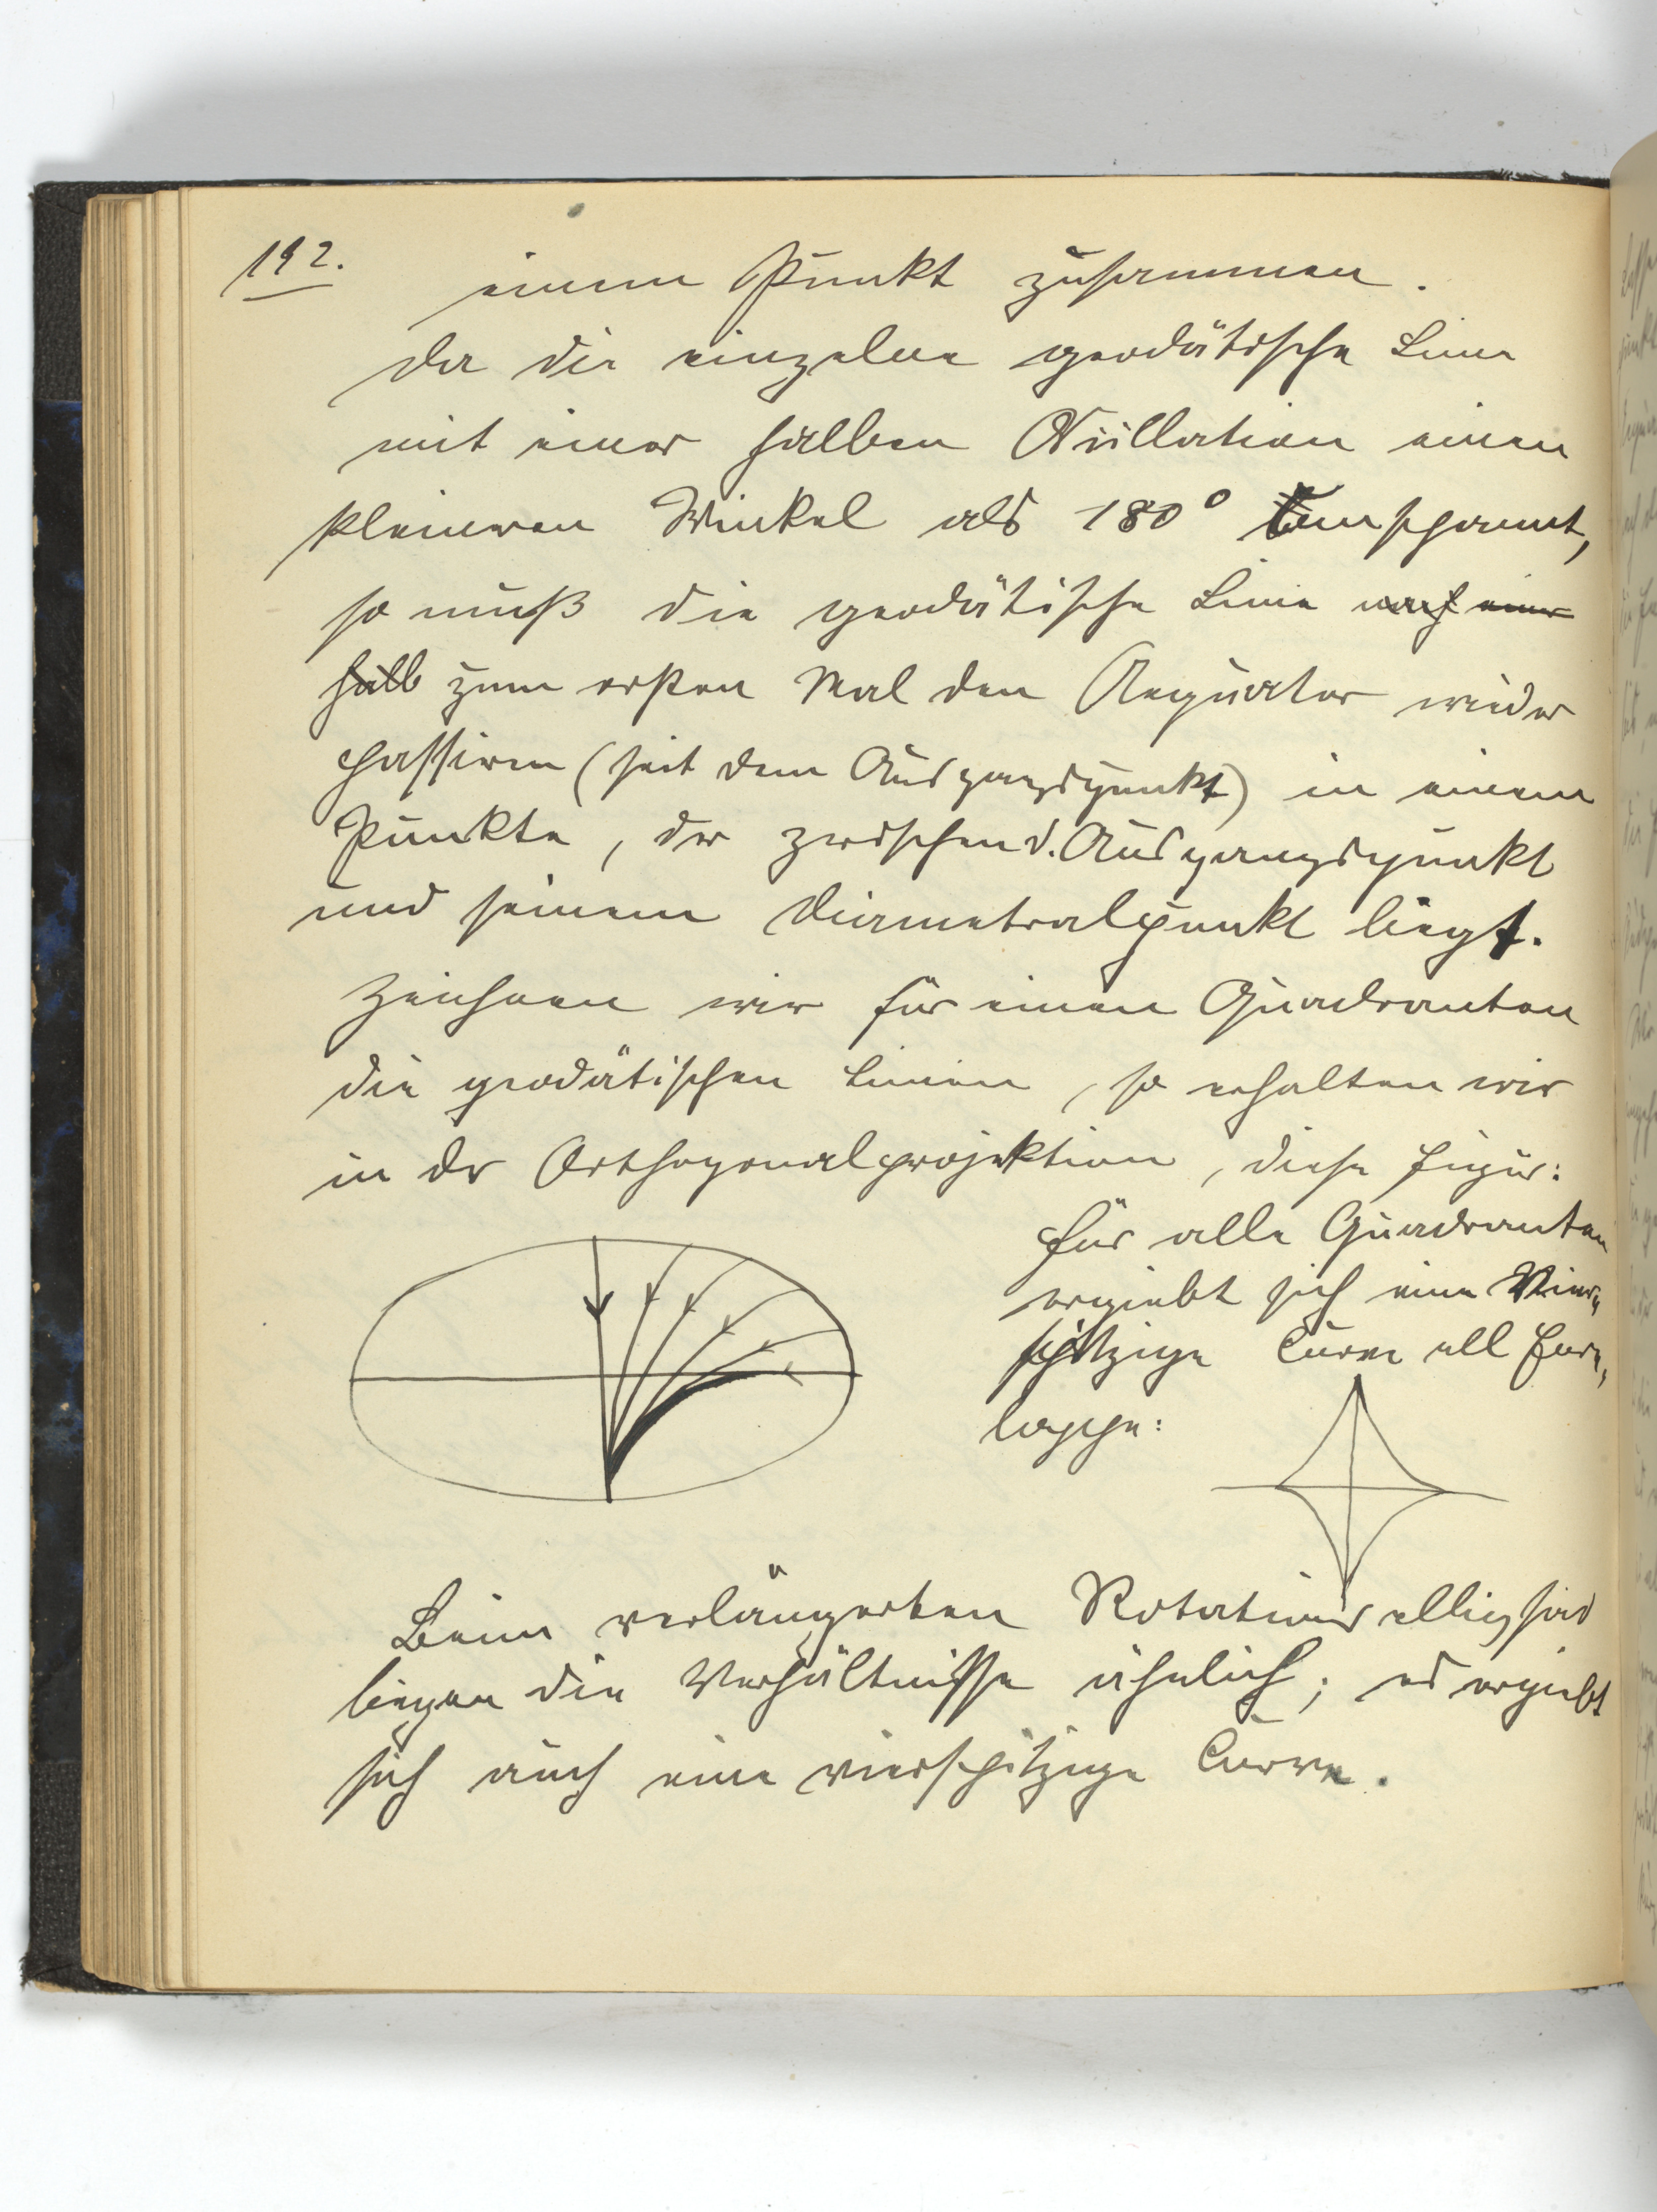 192.
einem Punkt zusammen.
Da die einzelne geodätische Linie
mit einer halben Oscillation einen
kleineren Winkel als 180° umspannt,
so muß die geodätische Linie nach einer
halb zum ersten Mal den Aequator wieder
passiren (seit dem Ausgangspunkt) in einem
Punkte, der zwischen d. Ausgangspunkt
und seinem Diametralpunkt liegt.
Zeichnen wir für einen Quadranten
die geodätischen Linien, so erhalten wir
in der Orthogonalprojektion, diese Figur:
Für alle Quadranten
ergiebt sich eine Vier„
spitzige Curve als Env„
loppe:
Beim verlängerten Rotationsellipsoid
liegen die Verhältnisse ähnlich; es ergiebt
sich auch eine vierspitzige Curve.